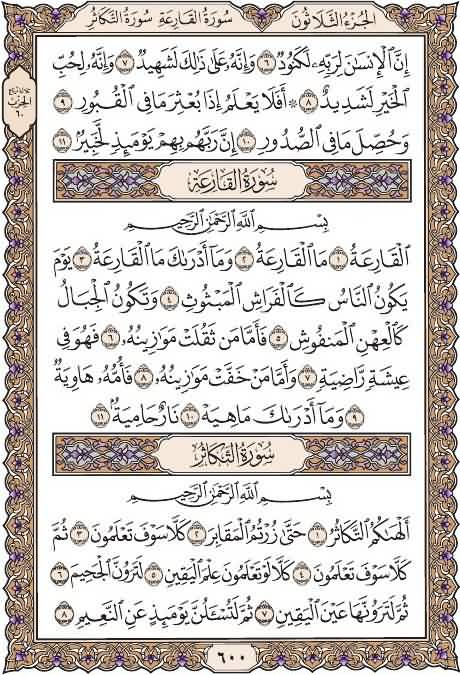 الجزء الثلاثون
سورة القارعة سورة التكاثر
إِنَّ ٱلْإِنسَٰنَ لِرَبِّهِۦ لَكَنُودٌ ٦ وَإِنَّهُۥ عَلَىٰ ذَٰلِكَ لَشَهِيدٌ ٧ وَإِنَّهُۥ لِحُبِّ
ٱلْخَيْرِ لَشَدِيدٌ ٨ ۞ أَفَلَا يَعْلَمُ إِذَا بُعْثِرَ مَا فِى ٱلْقُبُورِ ٩
وَحُصِّلَ مَا فِى ٱلصُّدُورِ ١٠ إِنَّ رَبَّهُم بِهِمْ يَوْمَئِذٍ لَّخَبِيرٌۢ ١١
سُورَةُ القَارِعَةِ
بِسْمِ ٱللَّهِ ٱلرَّحْمَٰنِ ٱلرَّحِيمِ
ٱلْقَارِعَةُ ١ مَا ٱلْقَارِعَةُ ٢ وَمَآ أَدْرَىٰكَ مَا ٱلْقَارِعَةُ ٣ يَوْمَ
يَكُونُ ٱلنَّاسُ كَٱلْفَرَاشِ ٱلْمَبْثُوثِ ٤ وَتَكُونُ ٱلْجِبَالُ
كَٱلْعِهْنِ ٱلْمَنفُوشِ ٥ فَأَمَّا مَن ثَقُلَتْ مَوَٰزِينُهُۥ ٦ فَهُوَ فِى
عِيشَةٍ رَّاضِيَةٍ ٧ وَأَمَّا مَنْ خَفَّتْ مَوَٰزِينُهُۥ ٨ فَأُمُّهُۥ هَاوِيَةٌ
٩ وَمَآ أَدْرَىٰكَ مَا هِيَهْ ١٠ نَارٌ حَامِيَةٌۢ ١١
سُورَةُ التَّكَاثُرِ
بِسْمِ ٱللَّهِ ٱلرَّحْمَٰنِ ٱلرَّحِيمِ
أَلْهَىٰكُمُ ٱلتَّكَاثُرُ ١ حَتَّىٰ زُرْتُمُ ٱلْمَقَابِرَ ٢ كَلَّا سَوْفَ تَعْلَمُونَ ٣ ثُمَّ
كَلَّا سَوْفَ تَعْلَمُونَ ٤ كَلَّا لَوْ تَعْلَمُونَ عِلْمَ ٱلْيَقِينِ ٥ لَتَرَوُنَّ ٱلْجَحِيمَ ٦
ثُمَّ لَتَرَوُنَّهَا عَيْنَ ٱلْيَقِينِ ٧ ثُمَّ لَتُسْـَٔلُنَّ يَوْمَئِذٍ عَنِ ٱلنَّعِيمِ ٨
٦٠٠